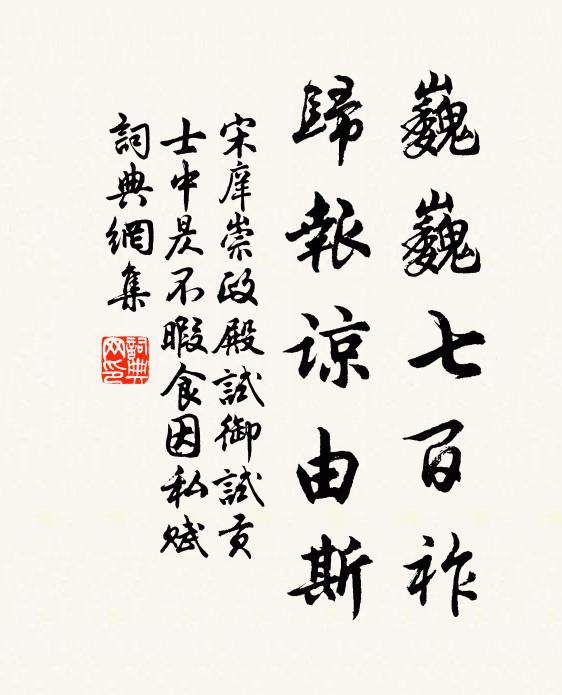 巍巍七百祚
歸報諒由斯
宋庠崇政殿試御試貢
士中昃不暇食因私賦
詞典網集
詞典網印